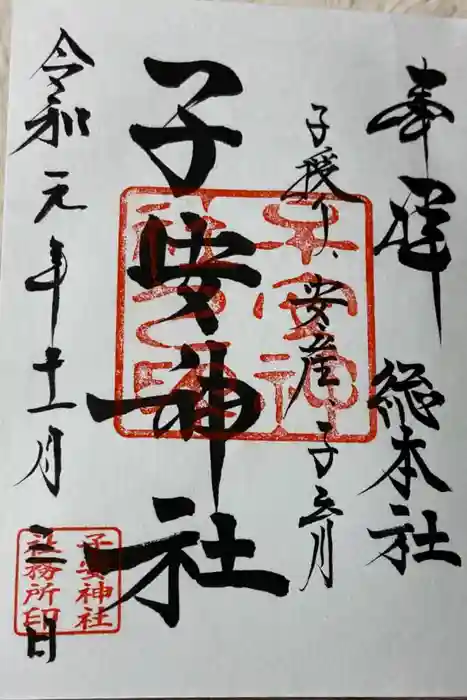 奉拝 総本社
子授り、安産、子育
子安神社
令和元年十一月三日
子安神社
社務所印